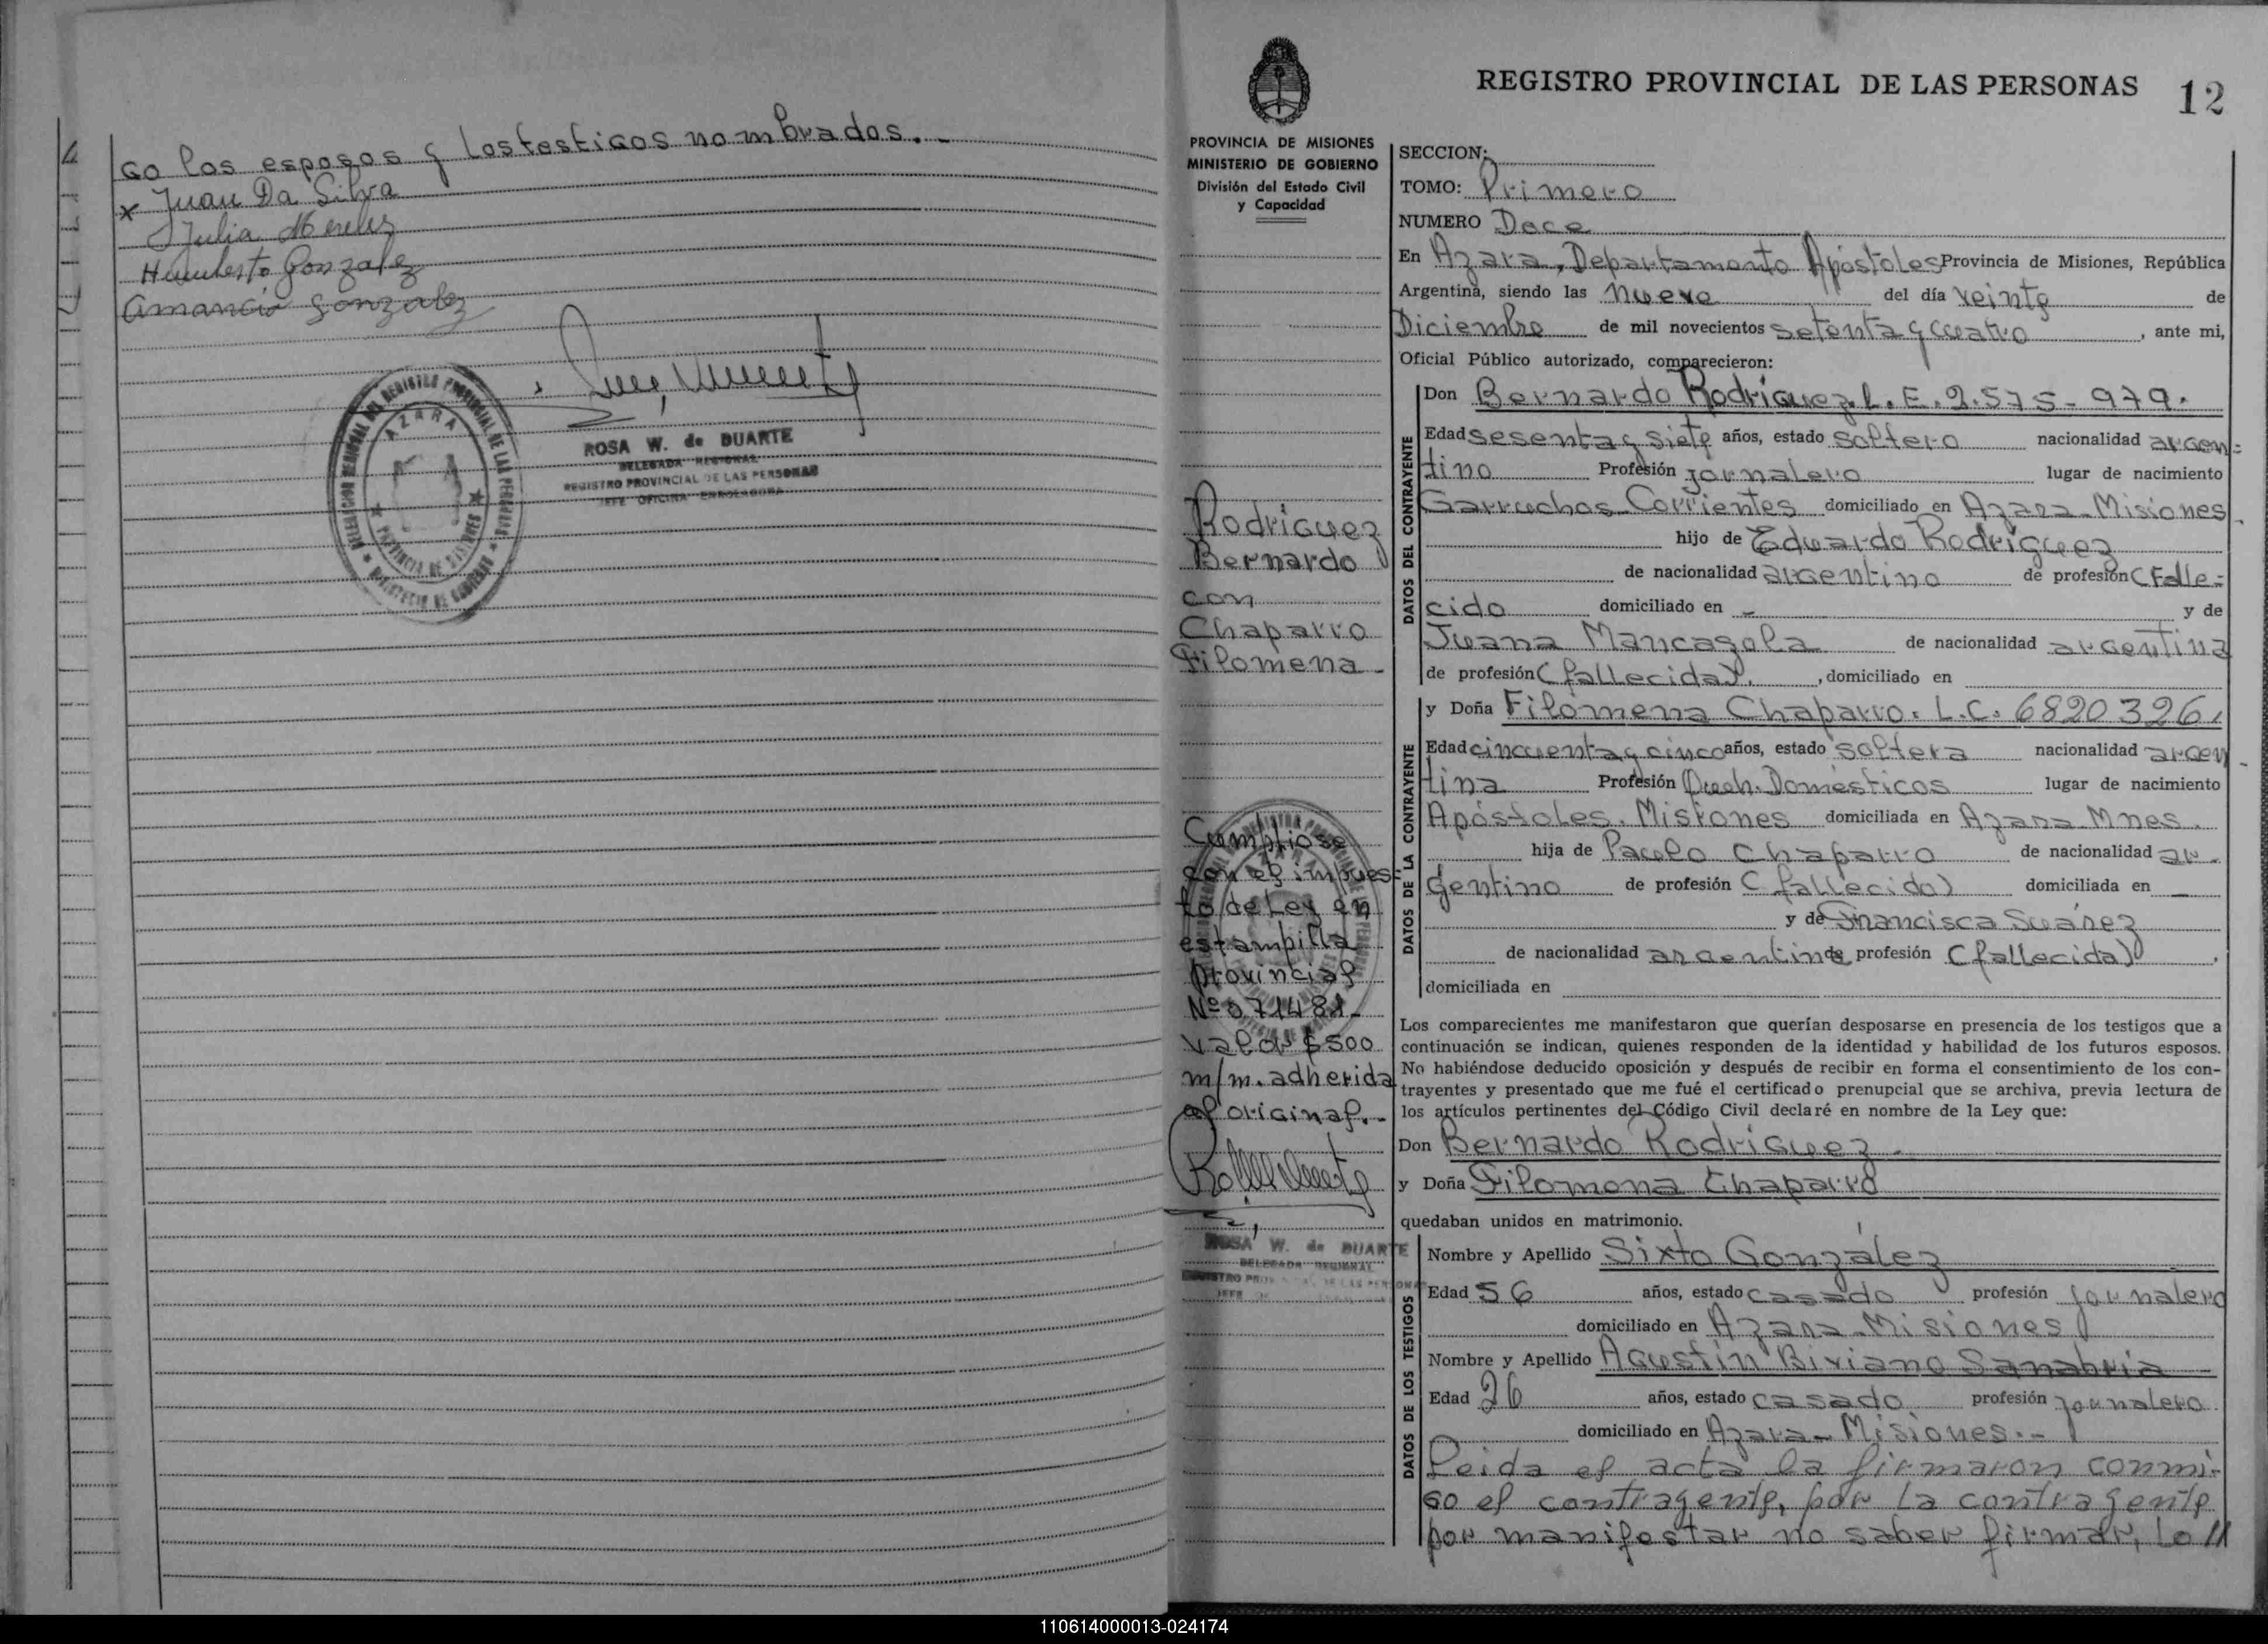 go los esposos y los testigos nombrados.-
x Juan Da Silva
Julia Mereles
Humberto Gonzalez
Amancio Gonzalez
DELEGACION REGIONAL DEL REGISTRO PROVINCIAL DE LAS PERSONAS
AZARA
PROVINCIA DE MISIONES
MINISTERIO DE GOBIERNO
ROSA W. de DUARTE
DELEGADA REGIONAL
REGISTRO PROVINCIAL DE LAS PERSONAS
JEFE OFICINA ENROLADORA
PROVINCIA DE MISIONES
MINISTERIO DE GOBIERNO
División del Estado Civil
y Capacidad
Rodriguez
Bernardo
con
Chaparro
Filomena-
Cumpliose
con el impues-
to de Ley en
estampilla
provincial
Nº 071481-
valor $ 500
m/m. adherida
al original.-
ROSA W. de DUARTE
DELEGADA REGIONAL
REGISTRO PROVINCIAL DE LAS PERSONAS
REGISTRO PROVINCIAL DE LAS PERSONAS 12
SECCION:
TOMO: Primero
NUMERO Doce
En Azara, Departamento Apóstoles Provincia de Misiones, República
Argentina, siendo las nueve del día veinte de
Diciembre de mil novecientos setenta y cuatro, ante mi,
Oficial Público autorizado, comparecieron:
DATOS DEL CONTRAYENTE
Don Bernardo Rodriguez. L. E. 2.575-979.
Edad sesenta y siete años, estado soltero nacionalidad argen=
tino Profesión jornalero lugar de nacimiento
Garruchos-Corrientes domiciliado en Azara-Misiones
hijo de Eduardo Rodríguez
de nacionalidad argentino de profesión (Falle=
cido domiciliado en - y de
Juana Mancagola de nacionalidad argentina
de profesión (fallecida). , domiciliado en
DATOS DE LA CONTRAYENTE
y Doña Filomena Chaparro. L.C. 6820326,
Edad cincuenta y cinco años, estado soltera nacionalidad argen
tina Profesión Queh. Domésticos lugar de nacimiento
Apóstoles. Misiones domiciliada en Azara Mnes.
hija de Paulo Chaparro de nacionalidad ar-
gentino de profesión (fallecido) domiciliada en -
y de Francisca Suárez
de nacionalidad argentina de profesión (fallecida)
domiciliada en
Los comparecientes me manifestaron que querían desposarse en presencia de los testigos que a
continuación se indican, quienes responden de la identidad y habilidad de los futuros esposos.
No habiéndose deducido oposición y después de recibir en forma el consentimiento de los con-
trayentes y presentado que me fué el certificado prenupcial que se archiva, previa lectura de
los artículos pertinentes del Código Civil declaré en nombre de la Ley que:
Don Bernardo Rodriguez-
y Doña Filomena Chaparro
quedaban unidos en matrimonio.
DATOS DE LOS TESTIGOS
Nombre y Apellido Sixto González
Edad 56 años, estado casado profesión jornalero
domiciliado en Azara-Misiones
Nombre y Apellido Agustín Biviano Sanabria
Edad 26 años, estado casado profesión jornalero
domiciliado en Azara-Misiones.-
Leida el acta la firmaron conmi-
go el contrayente, por la contrayente
por manifestar no saber firmar, lo //
110614000013-024174